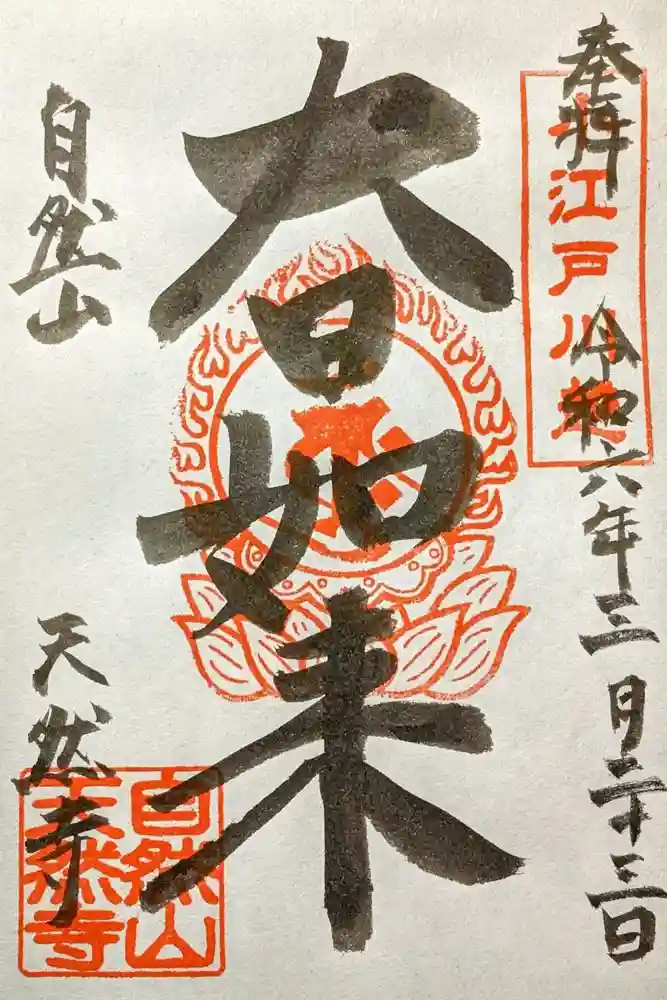 奉拝
令和六年三月二十三日
江戸川
大日如来
自然山
天然寺
自然山
天然寺